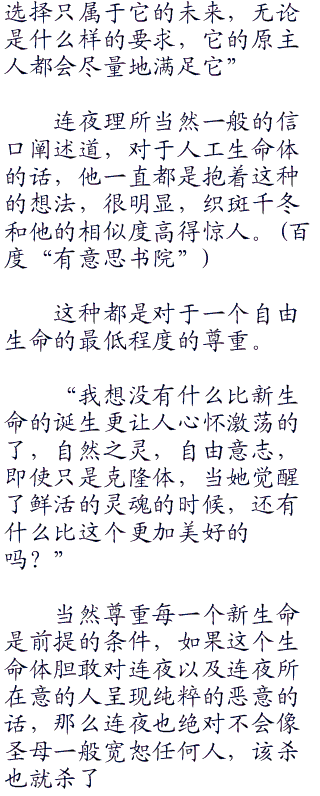 选择只属于它的未来，无论
是什么样的要求，它的原主
人都会尽量地满足它”
连夜理所当然一般的信
口阐述道，对于人工生命体
的话，他一直都是抱着这种
的想法，很明显，织斑千冬
和他的相似度高得惊人。(百
度“有意思书院”)
这种都是对于一个自由
生命的最低程度的尊重。
“我想没有什么比新生
命的诞生更让人心怀激荡的
了，自然之灵，自由意志，
即使只是克隆体，当她觉醒
了鲜活的灵魂的时候，还有
什么比这个更加美好的
吗？”
当然尊重每一个新生命
是前提的条件，如果这个生
命体胆敢对连夜以及连夜所
在意的人呈现纯粹的恶意的
话，那么连夜也绝对不会像
圣母一般宽恕任何人，该杀
也就杀了